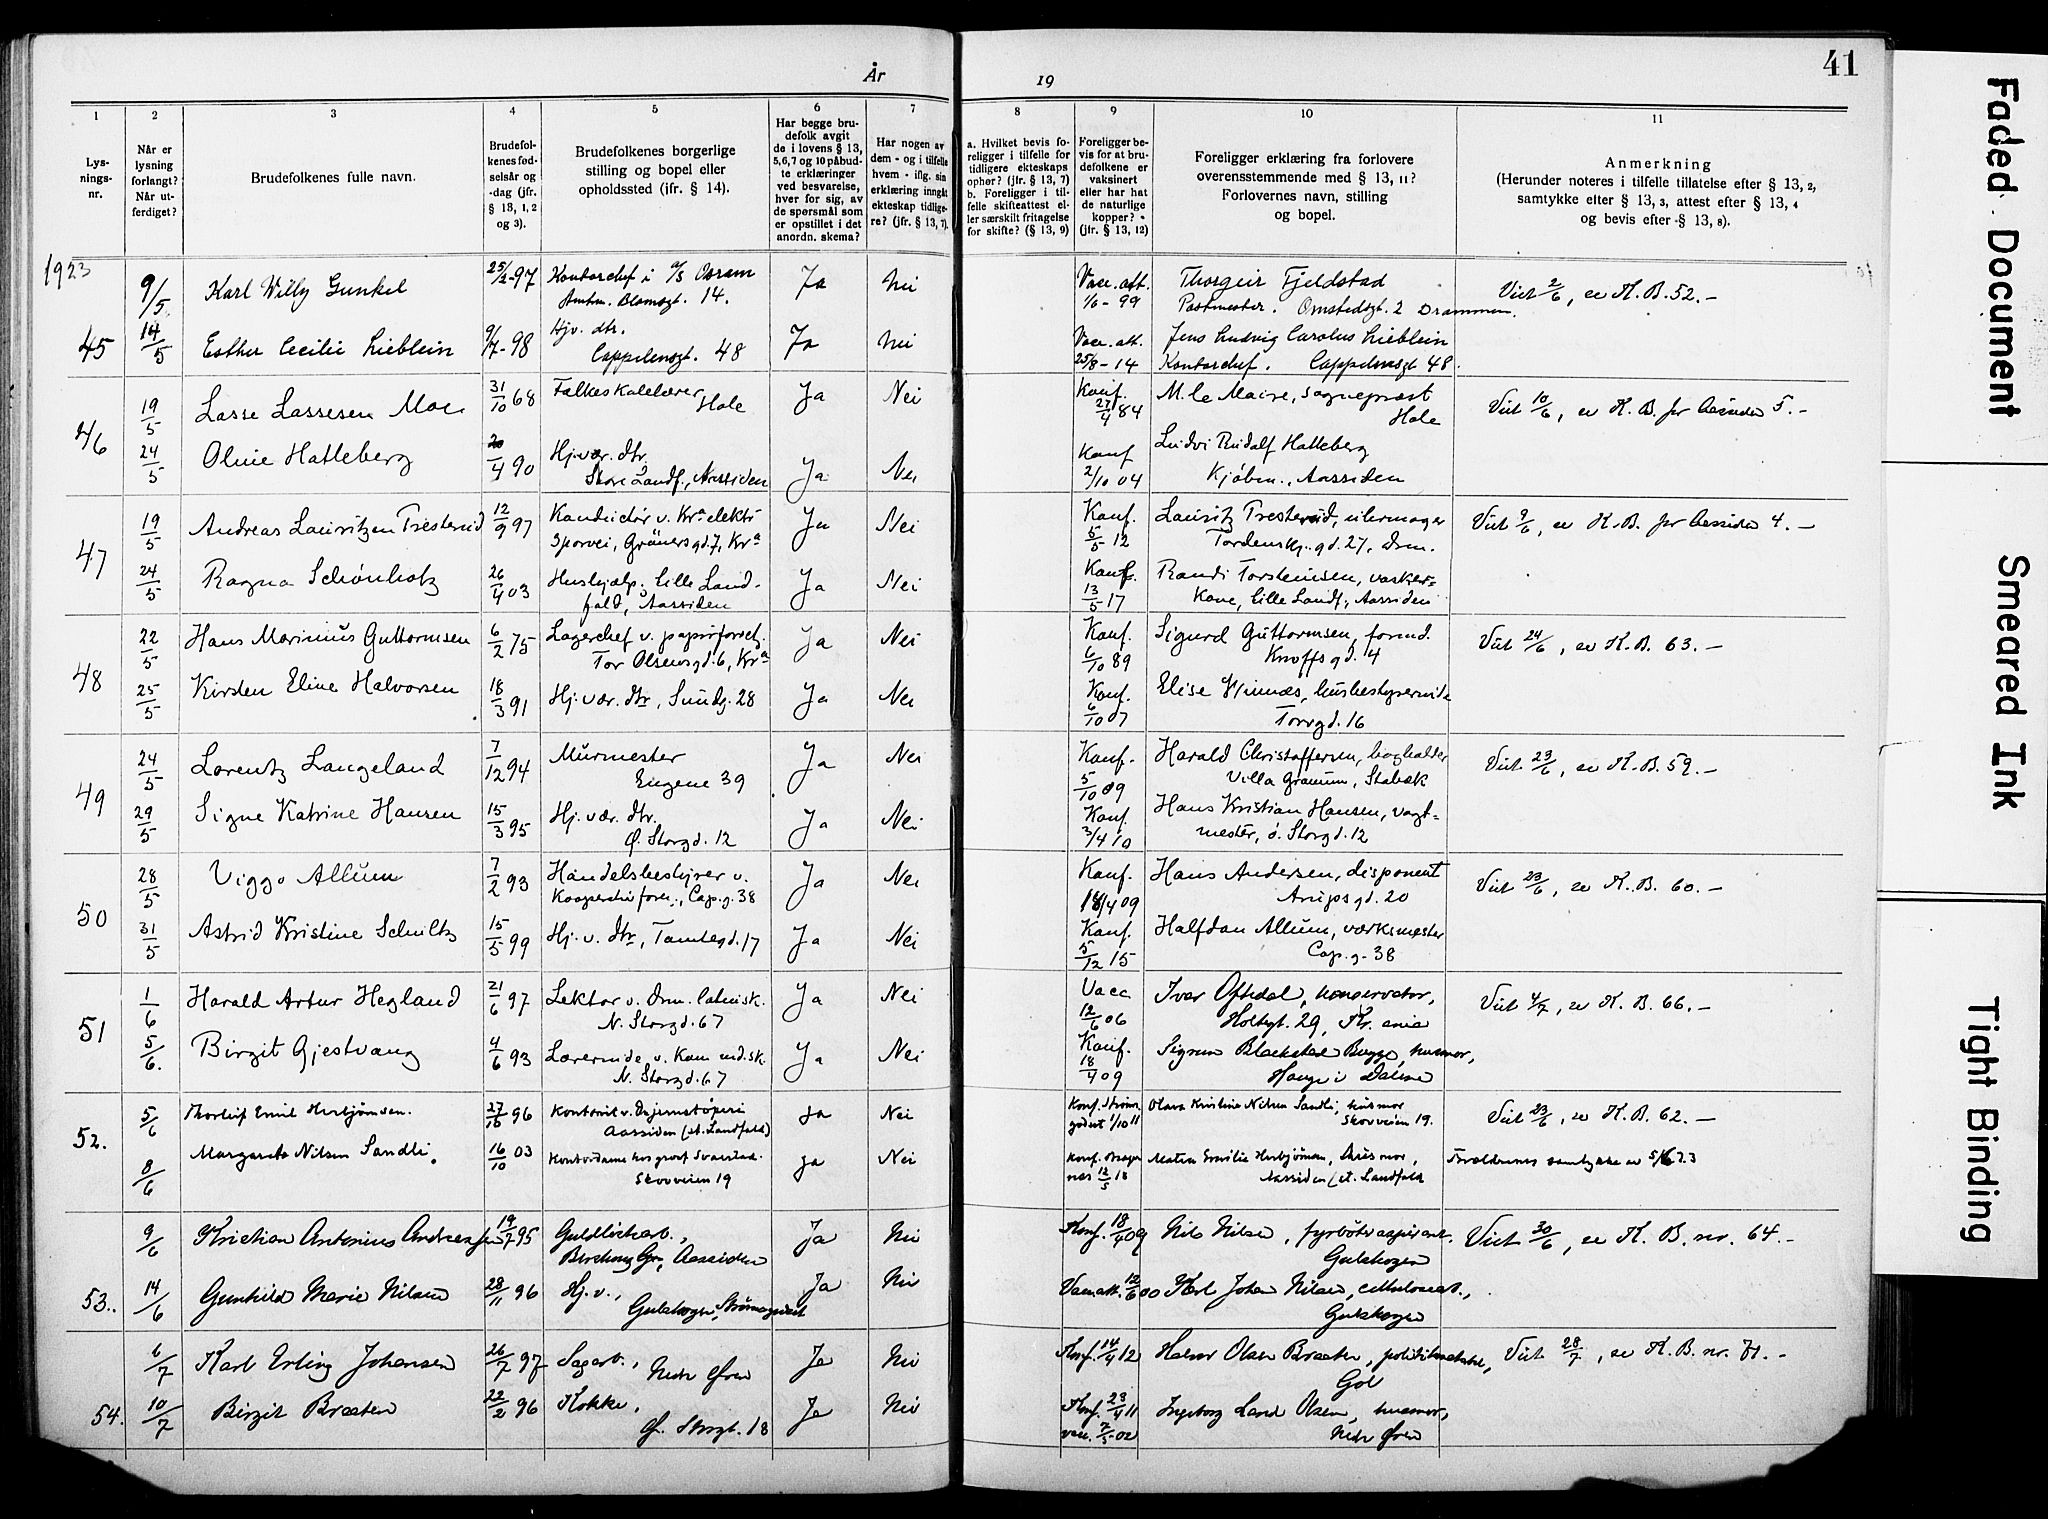 År 19
41
1
2
3
4
5
6
7
8
9
10
11
Lys-
nings-
nr.
Når er
lysning
forlangt?
Når ut-
ferdiget?
Brudefolkenes fulle navn.
Brudefol-
kenes fød-
selsår og
-dag (jfr.
§ 13, 1, 2
og 3).
Brudefolkenes borgerlige
stilling og bopel eller
opholdssted (ifr. § 14).
Har begge bru-
defolk avgit
de i lovens § 13,
5, 6, 7 og 10 påbud-
te erklæringer
ved besvarelse,
hver for sig, av
de spørsmål som
er opstillet i det
anordn. skema?
Har nogen av
dem - og i tilfelle
hvem - iflg. sin
erklæring inngått
ekteskap tidlige-
re? (jfr. § 13, 7).
a. Hvilket bevis fo-
religger i tilfelle for
tidligere ekteskaps
ophør? (jfr. § 13, 7)
b. Foreligger i til-
felle skifteattest el-
ler særskilt fritagelse
for skifte? (§ 13, 9)
Foreligger be-
vis for at bru-
defolkene er
vaksinert
eller har hat
de naturlige
kopper?
(jfr. § 13, 12)
Foreligger erklæring fra forlovere
overensstemmende med § 13, 11?
Forlovernes navn, stilling
og bopel.
Anmerkning
(Herunder noteres i tilfelle tillatelse efter § 13, 2,
samtykke efter § 13, 3, attest efter § 13, 4
og bevis efter § 13, 8).
1923
9/5 Karl Willy Gunkel 25/2-97 Kontorchef i A/S Osram Ja Nei Vacc. att. Thorgeir Fjeldstad Viet 2/6, se K.B. 52.-
Amtm. Blomsgt. 14. 1/6-99 Postmester. Omstedsgt. 2 Drammen.
45 14/5 Esther Cecilie Lieblein 9/7-98 Hjv. dtr. Ja Nei Vacc. att. Jens Ludvig Carolus Lieblein
Cappelensgt. 48 25/8-14 Kontorchef. Cappelensgt 48.
46 19/5 Lasse Lassesen Moe 31/10 68 Folkeskolelærer Ja Nei Konf. M. le Maire, sogneprest Viet 10/6, se K.B. for Aassiden 5.-
Hole 27/4 84 Hole
24/5 Oline Hatleberg 20/4 90 Hj. vær. dtr. Ja Nei Konf Ludvi Rudolf Hatleberg
Store Landf., Aassiden 2/10 04 Kjøbm., Aassiden
47 19/5 Andreas Lauritzen Tresterud 12/9 97 Konduktør v. Kra elektr Ja Nei Konf. Lauritz Tresterud, uhrmager Viet 9/6, se K.B. for Aassiden 4.-
Sporvei, Grünersgd. 7, Kra 5/5 12 Tordenskj. gd. 27, Drm.
24/5 Ragna Schønholtz 26/4 03 Hushjælp. Lille Land- Ja Nei Konf. Randi Torsteinsen, vasker-
fald, Aassiden 13/5 17 kone, Lille Landf., Aassiden
48 22/5 Hans Marinius Guttormsen 6/2 75 Lagerchef v. papirforretn. Ja Nei Konf. Sigurd Guttormsen, formd. Viet 24/6, se K.B. 63.-
Tor Olsensgd. 6, Kra 6/10 89 Knoffsgd. 4
25/5 Kirsten Eline Halvorsen 18/3 91 Hj. vær. dtr, Sundg. 28 Ja Nei Konf. Elise husbestyrerinde
6/10 07 Torvgd. 16
49 24/5 Lorentz Langeland 7/12 94 Murmester Ja Nei Konf. Harald Christoffersen, bogholder Viet 23/6, se K.B. 59.-
Engene 39 5/10 09 Villa Granum, Stabæk
29/5 Signe Katrine Hansen 15/3 95 Hj. vær. dtr. Ja Nei Konf. Hans Kristian Hansen, vagt-
Ø. Storgd. 12 3/4 10 mester, ö. Storgd. 12
50 28/5 Viggo Allum 7/2 93 Handelsbestyrer v. Ja Nei Konf. Hans Andersen, disponent Viet 23/6, se K.B. 60.-
Kooperativ foren., Cap. g. 38 18/4 09 Arupsgd. 20
31/5 Astrid Kristine Schultz 15/5 99 Hj. v. dtr, Tomtegd. 17 Ja Nei Konf. Halfdan Allum, værksmester
5/12 15 Cap. g. 38
51 1/6 Harald Artur Hegland 21/6 97 Lektor v. Drm. latinsk. Ja Nei Vacc Ivar Oftedal, konservator, Viet 4/7, se K.B. 66.-
N. Storgd. 67 12/6 06 Holtegt. 29, Kr. ania
5/6. Birgit Gjestvang 4/6 93 Lærerinde v. Kom. md. sk. Ja Nei Konf. Sigrun Blackstad Bugge, husmor,
N. Storgd. 67 18/4 09 Hauger i
52. 5/6 Thorleif Emil Herbjørnsen. 27/10 96 Kontorist v. Dr. jernstøperi Ja Nei Konf. Strøms- Olava Kristine Nilsen Sandli, husmor Viet 23/6, se K.B. 62.-
Aassiden (st. Landfald) godset 1/10 11 Skovveien 19.
8/6 Margareta Nilsen Sandli. 16/10 03 Kontordame hos grosf Svarstad. Ja Nei Konf. Brager- Matea Emilie Herbjörnsen, husmor, Forældrenes samtykke av 5/6 23
Skovveien 19 nes 12/5 18 Aassiden (st. Landfald
9/6 Kristian Antonius Andreassen 19/7 95 Guldlistearb., Ja Nei Konf. 18/4 09 Nils Nilsen, fyrböteraspirant. Viet 30/6, se K.B. nr. 64.-
Aassiden Gulskogen
53. 14/6 Gunhild Marie Nilsen 28/11 96 Hj. v., Ja Nei Vacc. att. 12/6 00 Karl Johan Nilsen, cellulosearb.,
Gulskogen, Strømsgodset Gulskogen
6/7 Karl Erling Johansen 26/7 97 Sagarb., Ja Nei Konf. 14/4 12 Halvor Olsen Braaten, politibetjent, Viet 28/7, se K.B. nr. 71.-
Nedre Øren Gol
54. 10/7 Birgit Braaten 22/2 96 Kokke, Ja Nei Konf. 23/4 11 Ingeborg Lund Olsen, husmor,
Ø. Storgt. 18 vacc. 7/5 02 Nedre Øren
Faded Document
Smeared Ink
Tight Binding